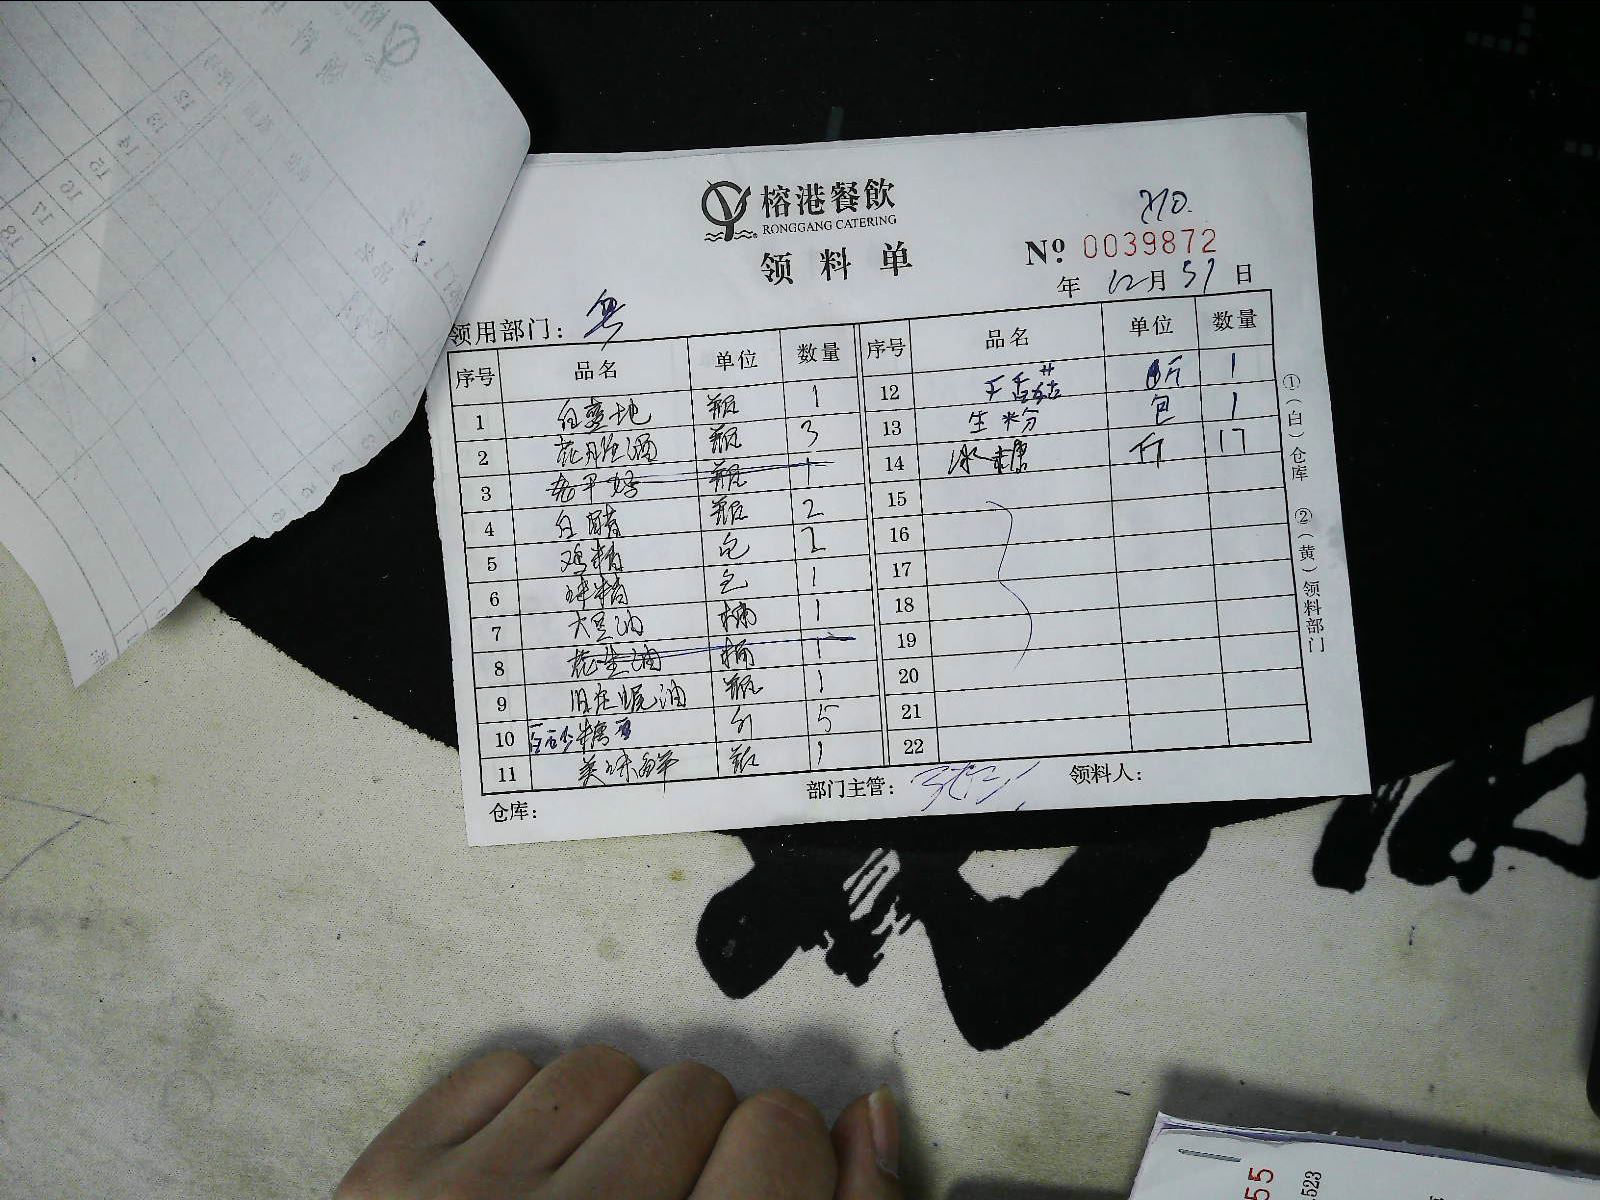 榕港餐飲
RONGGANG CATERING
领料单
210.
Nº 0039872
年 12月31日
领用部门: 粤
序号 品名 单位 数量
1 白兰地 瓶 1
2 花雕酒 瓶 3
3 瓶 1
4 白醋 瓶 2
5 鸡精 包 2
6 味精 包 1
7 大豆油 桶 1
8 花生油 桶 1
9 旧庄蚝油 瓶 1
10 白砂糖 斤 5
11 美味鲜 瓶 1
序号 品名 单位 数量
12 干香菇 斤 1
13 生粉 包 1
14 冰糖 斤 17
15
16
17
18
19
20
21
22
①(白)仓库 ②(黄)领料部门
仓库:
部门主管:
领料人:
55
523